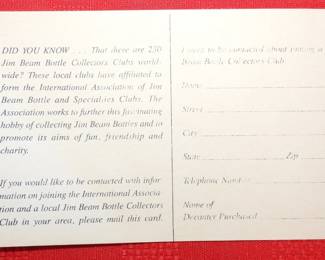 DID YOU KNOW . . . That there are 230
Jim Beam Bottle Collectors Clubs world-
wide? These local clubs have affiliated to
form the International Association of Jim
Beam Bottle and Specialties Clubs. The
Association works to further this fascinating
hobby of collecting Jim Beam Bottles and to
promote its aims of fun, friendship and
charity.
If you would like to be contacted with infor-
mation on joining the International Associa-
tion and a local Jim Beam Bottle Collectors
Club in your area, please mail this card.
to be contacted about joining a
Beam Bottle Collectors Club
Name
Street
City
State Zip
Telephone Number
Name of
Decanter Purchased